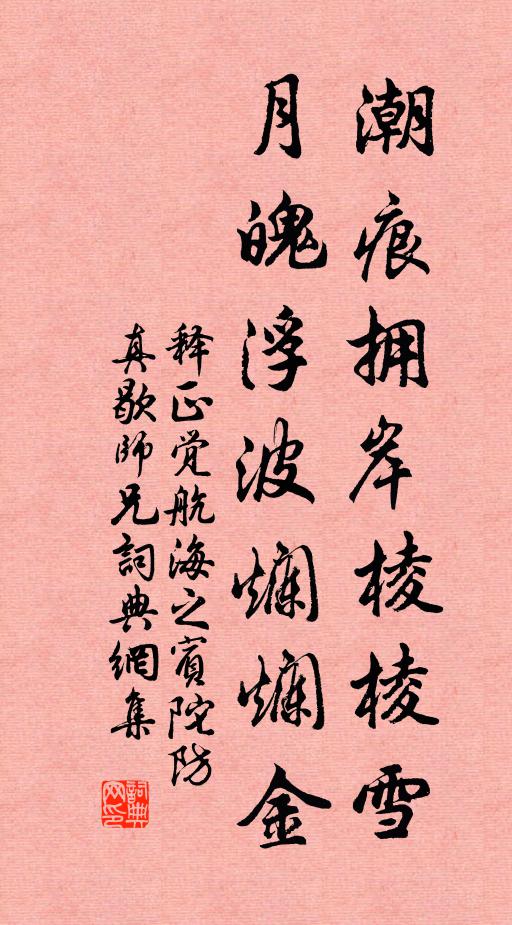 潮痕拥岸棱棱雪
月魄浮波爛爛金
释正觉航海之宾陀防
真歇師兄詞典網集
詞典网印